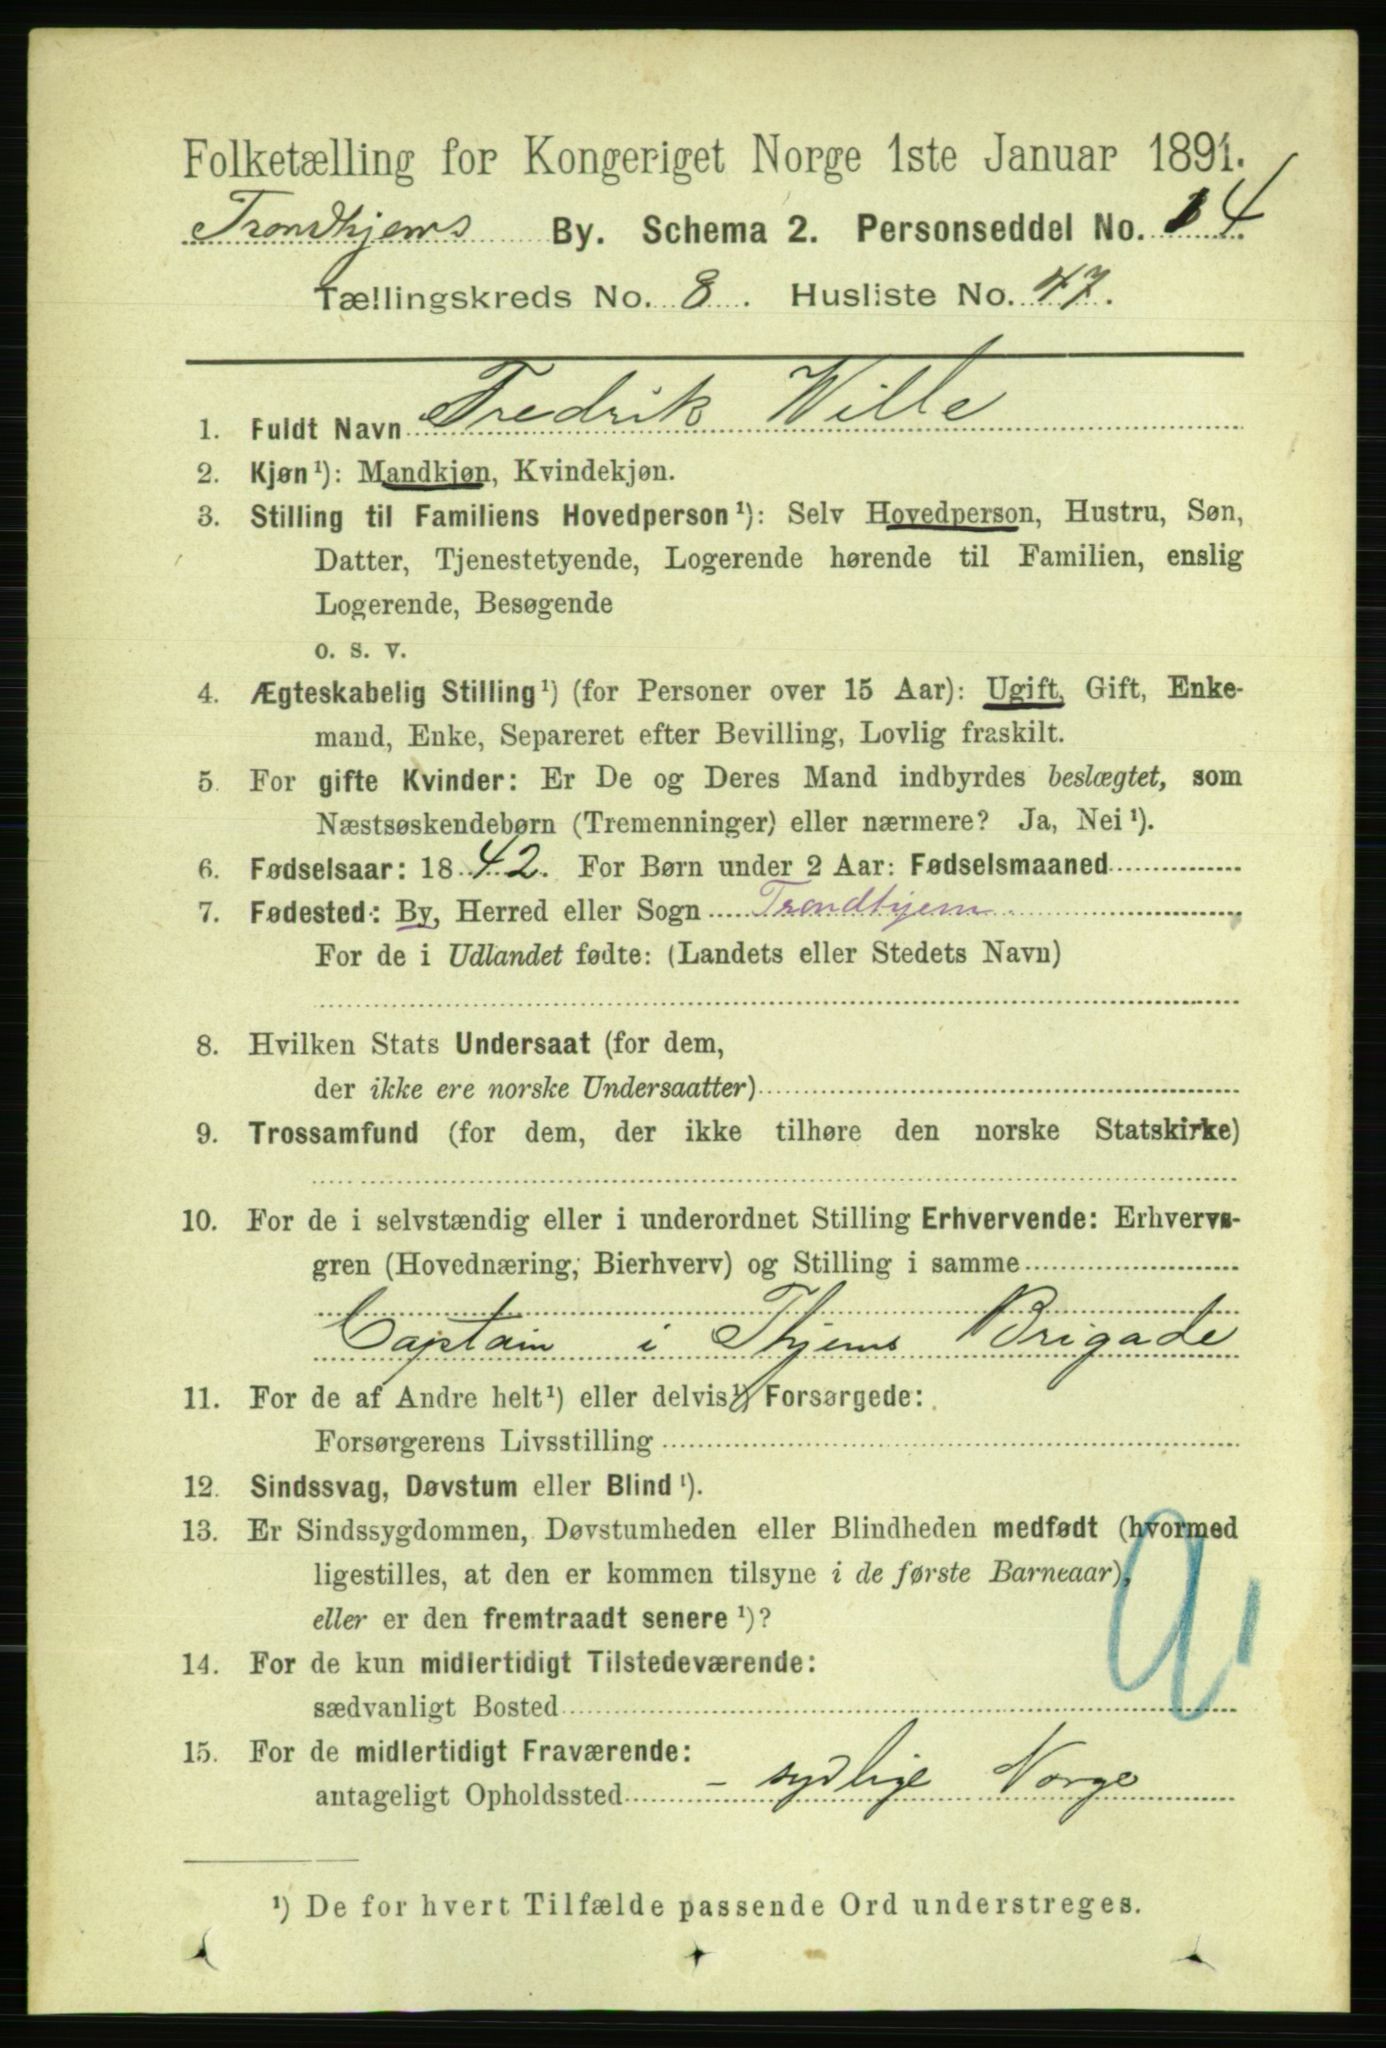 Folketælling for Kongeriget Norge 1ste Januar 1891.
Trondhjems By. Schema 2. Personseddel No. 14
Tællingskreds No. 8. Husliste No. 47.
1. Fuldt Navn Fredrik Wille
2. Kjøn ¹): Mandkjøn, Kvindekjøn.
3. Stilling til Familiens Hovedperson ¹): Selv Hovedperson, Hustru, Søn,
Datter, Tjenestetyende, Logerende hørende til Familien, enslig
Logerende, Besøgende
o. s. v.
4. Ægteskabelig Stilling ¹) (for Personer over 15 Aar): Ugift, Gift, Enke-
mand, Enke, Separeret efter Bevilling, Lovlig fraskilt.
5. For gifte Kvinder: Er De og Deres Mand indbyrdes beslægtet, som
Næstsøskendebørn (Tremenninger) eller nærmere? Ja, Nei ¹).
6. Fødselsaar: 1842. For Børn under 2 Aar: Fødselsmaaned
7. Fødested: By, Herred eller Sogn Trondhjem
For de i Udlandet fødte: (Landets eller Stedets Navn)
8. Hvilken Stats Undersaat (for dem,
der ikke ere norske Undersaatter)
9. Trossamfund (for dem, der ikke tilhøre den norske Statskirke)
10. For de i selvstændig eller i underordnet Stilling Erhvervende: Erhvervs-
gren (Hovednæring, Bierhverv) og Stilling i samme
Captain i Thjems Brigade
11. For de af Andre helt ¹) eller delvis ¹) Forsørgede:
Forsørgerens Livsstilling
12. Sindssvag, Døvstum eller Blind ¹).
13. Er Sindssygdommen, Døvstumheden eller Blindheden medfødt (hvormed
ligestilles, at den er kommen tilsyne i de første Barneaar),
eller er den fremtraadt senere ¹)?
14. For de kun midlertidigt Tilstedeværende:
sædvanligt Bosted
15. For de midlertidigt Fraværende:
antageligt Opholdssted - sydlige Norge
¹) De for hvert Tilfælde passende Ord understreges.